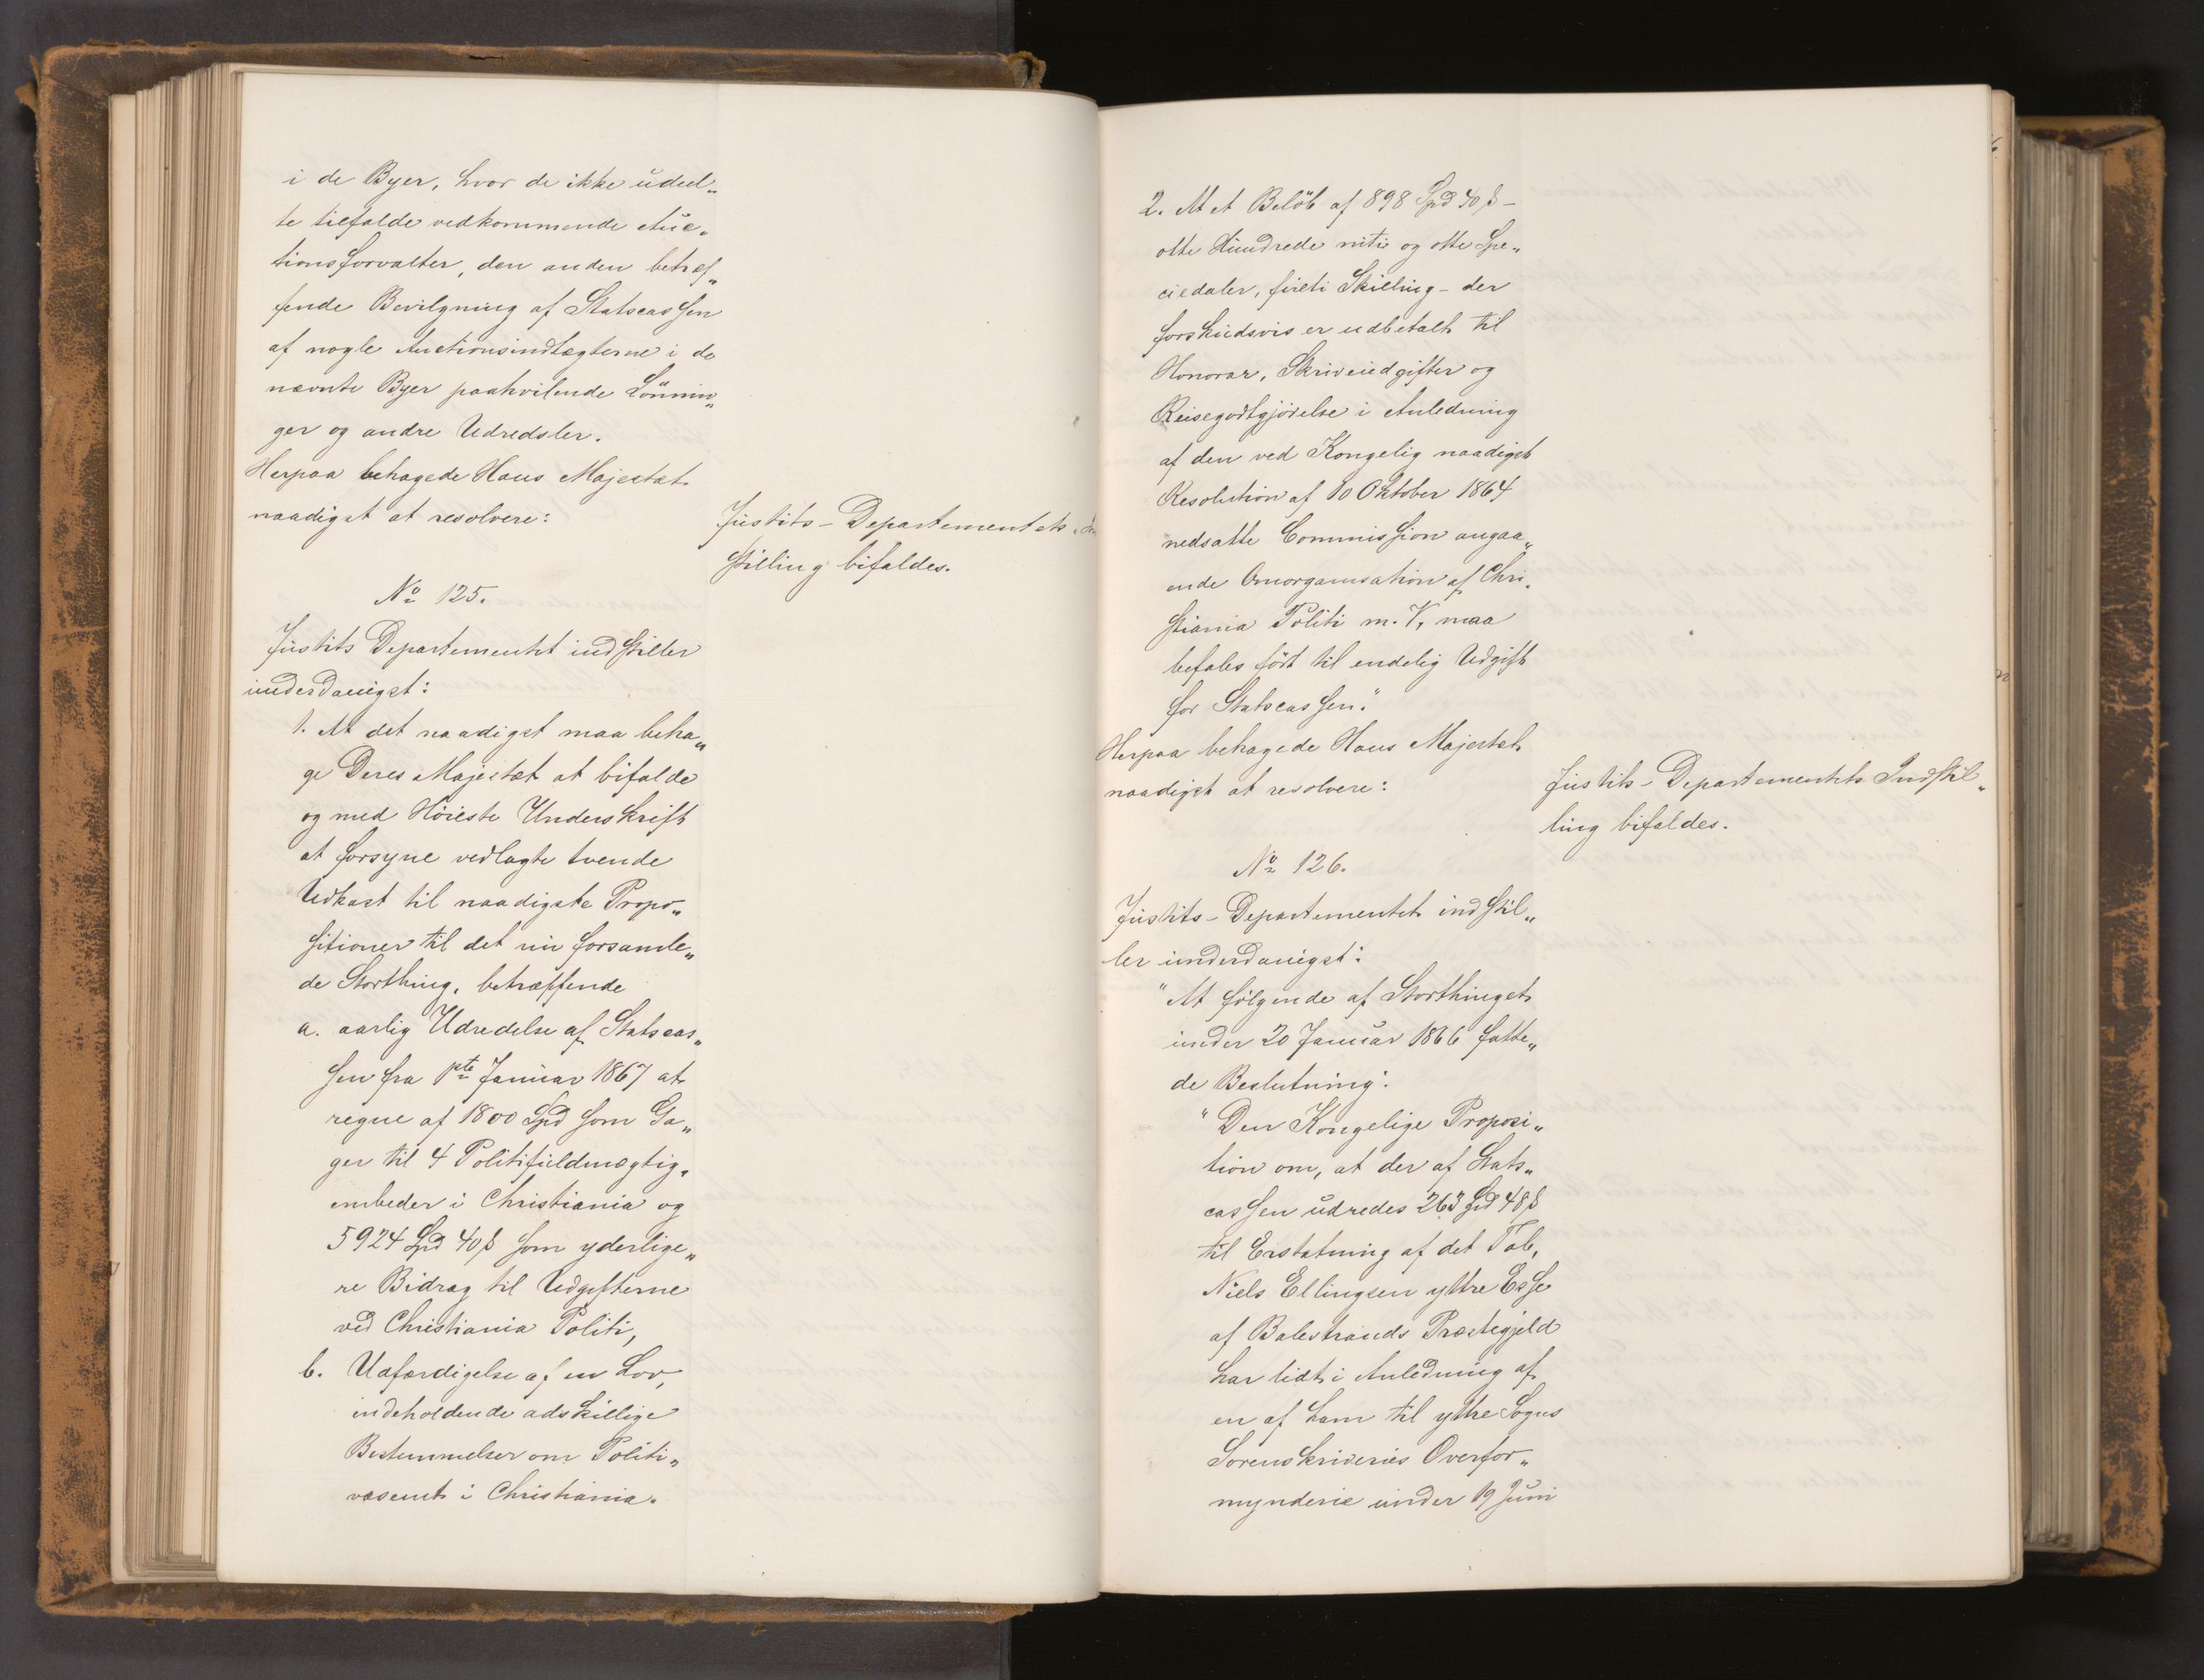 i de Byer, hvor de ikke udeel„
te tilfalde vedkommende Auc„
tionsforvalter, den anden betræf„
fende Bevilgning af Statscassen
af nogle Auctionsindtægterne i de
nævnte Byer paahvilende Lönnin„
ger og andre Udredsler.
Herpaa behagede Hans Majestæt
naadigst at resolvere:
Justits-Departementets In
stilling bifaldes.
No 125.
Justits Departementet indstiller
underdanigst:
1. At det naadigst maa beha„
ge Deres Majestæt at bifalde
og med Höieste Underskrift
at forsyne vedlagte tvende
Udkast til naadigste Propo„
sitioner til det nu forsamle„
de Storthing, betræffende
a. aarlig Udredelse af Statscas„
sen fra 1ste Januar 1867 at
regne af 1800 Spd som Ga„
ger til 4 Politifuldmægtig„
embeder i Christiania og
5924 Spd 40 ß som yderlige„
re Bidrag til Udgifterne
ved Christiania Politi,
b. Udfærdigelse af en Lov,
indeholdende adskillige
Bestemmelser om Politi„
væsenet i Christiania.
2. At et Belöb af 898 Spd 40 ß –
otte Hundrede nitio og otte Spe„
ciedaler, fireti Skilling – der
forskudsvis er udbetalt til
Honorar, Skriveudgifter og
Reisegodtgjörelse i Anledning
af den ved Kongelig naadigst
Resolution af 10 Oktober 1864
nedsatte Commission angaa„
ende Omorganisation af Chri„
stiania Politi m. V, maa
befales fört til endelig Udgift
for Statscassen."
Herpaa behagede Hans Majestæt
naadigst at resolvere:
Justits-Departementets Indstil„
ling bifaldes.
No 126.
Justits-Departementet indstil„
ler underdanigst:
"At fölgende af Storthinget
under 20 Januar 1866 fatte„
de Beslutning:
"Den Kongelige Proposi„
tion om, at der af Stats„
cassen udredes 263 Spd 48 ß
til Erstatning af det Tab,
Niels Ellingsen yttre Esse
af Balestrands Præstegjeld
har lidt i Anledning af
en af ham til yttre Sogns
Sorenskriveries Overfor„
mynderie under 19 Juni